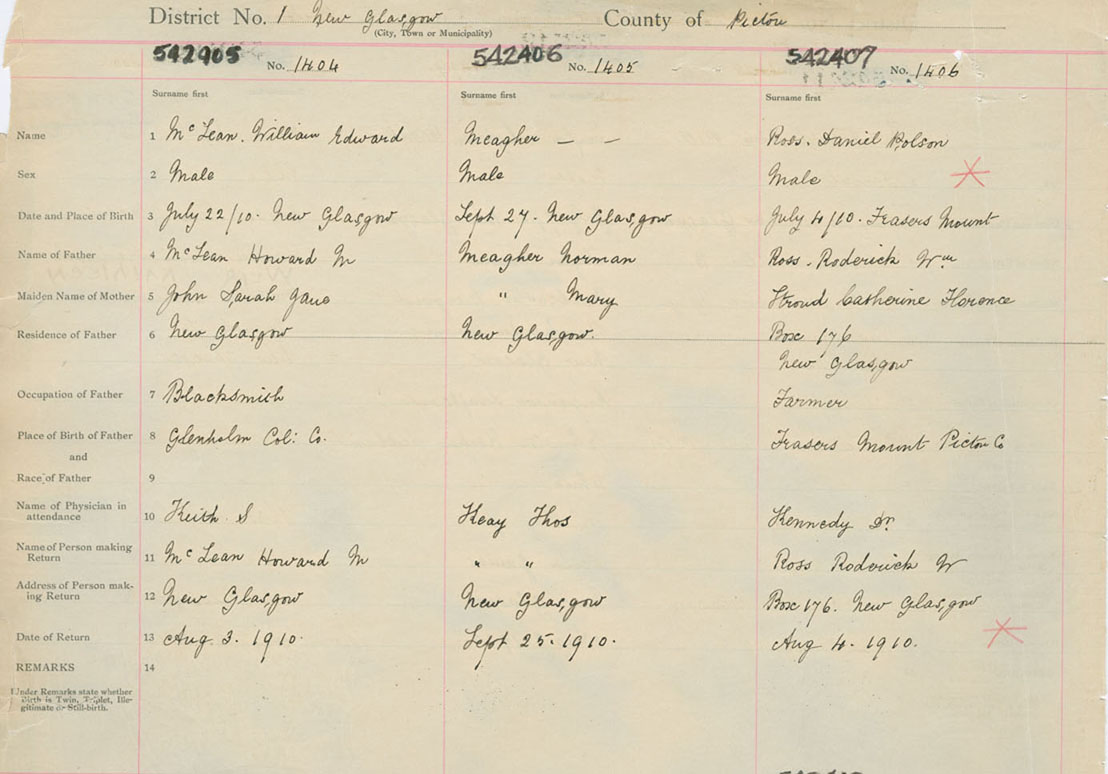 District No. 1 New Glasgow County of Pictou
(City, Town or Municipality)
542405 No. 1404 542406 No. 1405 542407 No. 1406
Surname first Surname first Surname first
Name 1 McLean. William Edward Meagher — — Ross. Daniel Polson
Sex 2 Male Male Male
Date and Place of Birth 3 July 22/10. New Glasgow Sept 27. New Glasgow July 4/10. Frasers Mount
Name of Father 4 McLean Howard M Meagher Norman Ross. Roderick Wm
Maiden Name of Mother 5 John Sarah Jane " Mary Stroud Catherine Florence
Residence of Father 6 New Glasgow New Glasgow. Box 176
New Glasgow
Occupation of Father 7 Blacksmith Farmer
Place of Birth of Father 8 Glenholm Col: Co. Frasers Mount Pictou Co
and
Race of Father 9
Name of Physician in
attendance 10 Keith. S Keay Thos Kennedy Dr
Name of Person making
Return 11 McLean Howard M " " Ross Roderick W
Address of Person mak-
ing Return 12 New Glasgow New Glasgow Box 176. New Glasgow
Date of Return 13 Aug. 3. 1910. Sept 25. 1910. Aug 4. 1910.
REMARKS 14
Under Remarks state whether
Birth is Twin, Triplet, Ille-
gitimate or Still-birth.